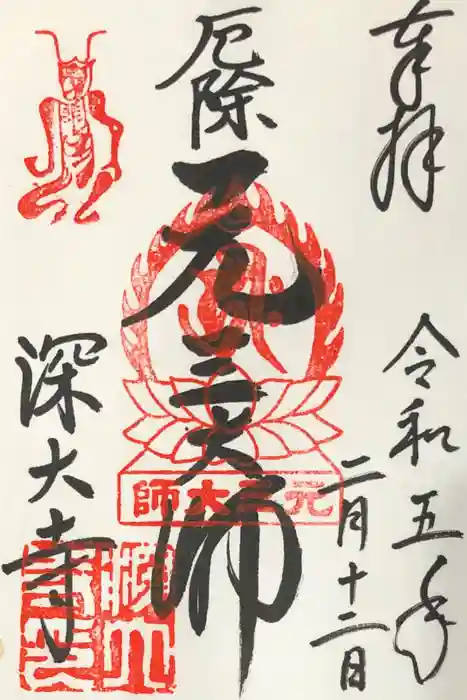 奉拝
令和五年
二月十二日
厄除
元三大師
深大寺
元三大師